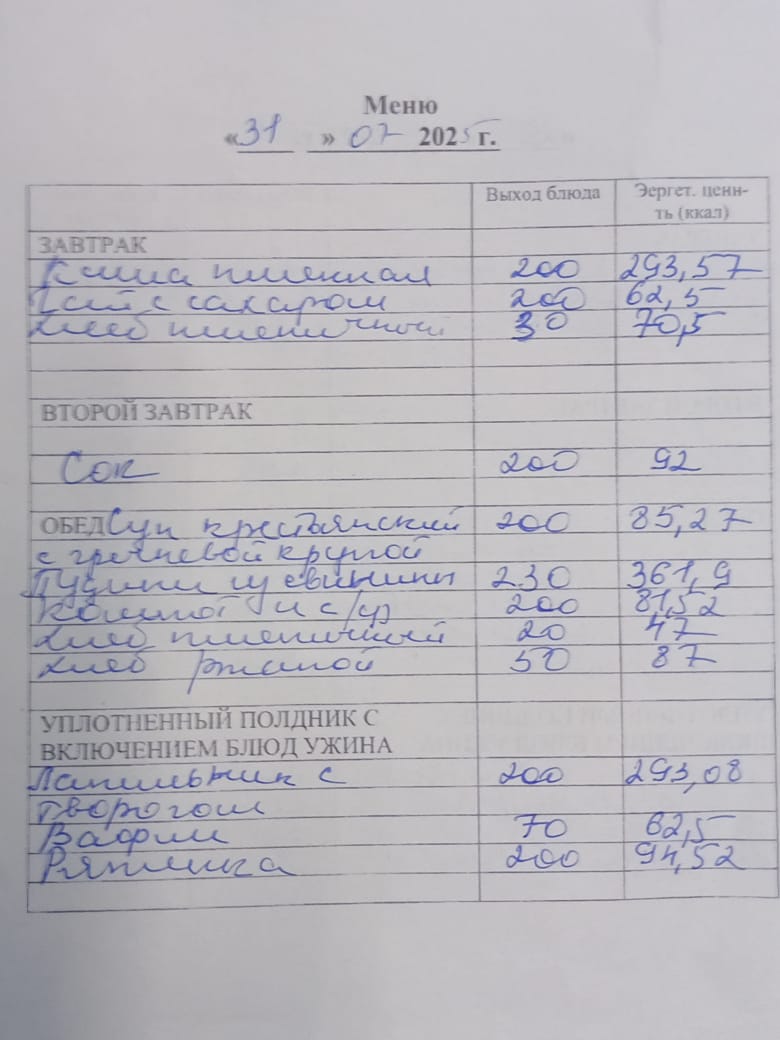 Меню
«31» 07 2025 г.
Выход блюда Эергет. ценн-
ть (ккал)
ЗАВТРАК
Каша пшенная 200 293,57
Чай с сахаром 200 62,5
хлеб пшеничный 30 70,5
ВТОРОЙ ЗАВТРАК
Сок 200 92
ОБЕД Суп крестьянский 200 85,27
с гречневой крупой
из свинины 230 361,9
Компот из с/ф 200 81,52
хлеб пшеничный 20 47
хлеб ржаной 50 87
УПЛОТНЕННЫЙ ПОЛДНИК С
ВКЛЮЧЕНИЕМ БЛЮД УЖИНА
Лапшевник с 200 293,08
творогом
Вафли 70 62,5
Ряженка 200 94,52